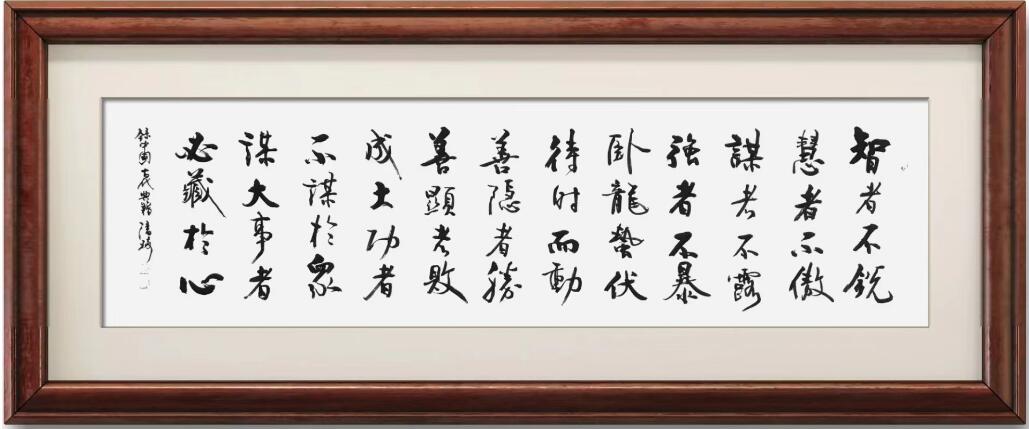 智者不锐
慧者不傲
謀者不露
強者不暴
卧龍蟄伏
待时而動
善隱者勝
善顯者敗
成大功者
不謀於衆
謀大事者
必藏於心
錄中國